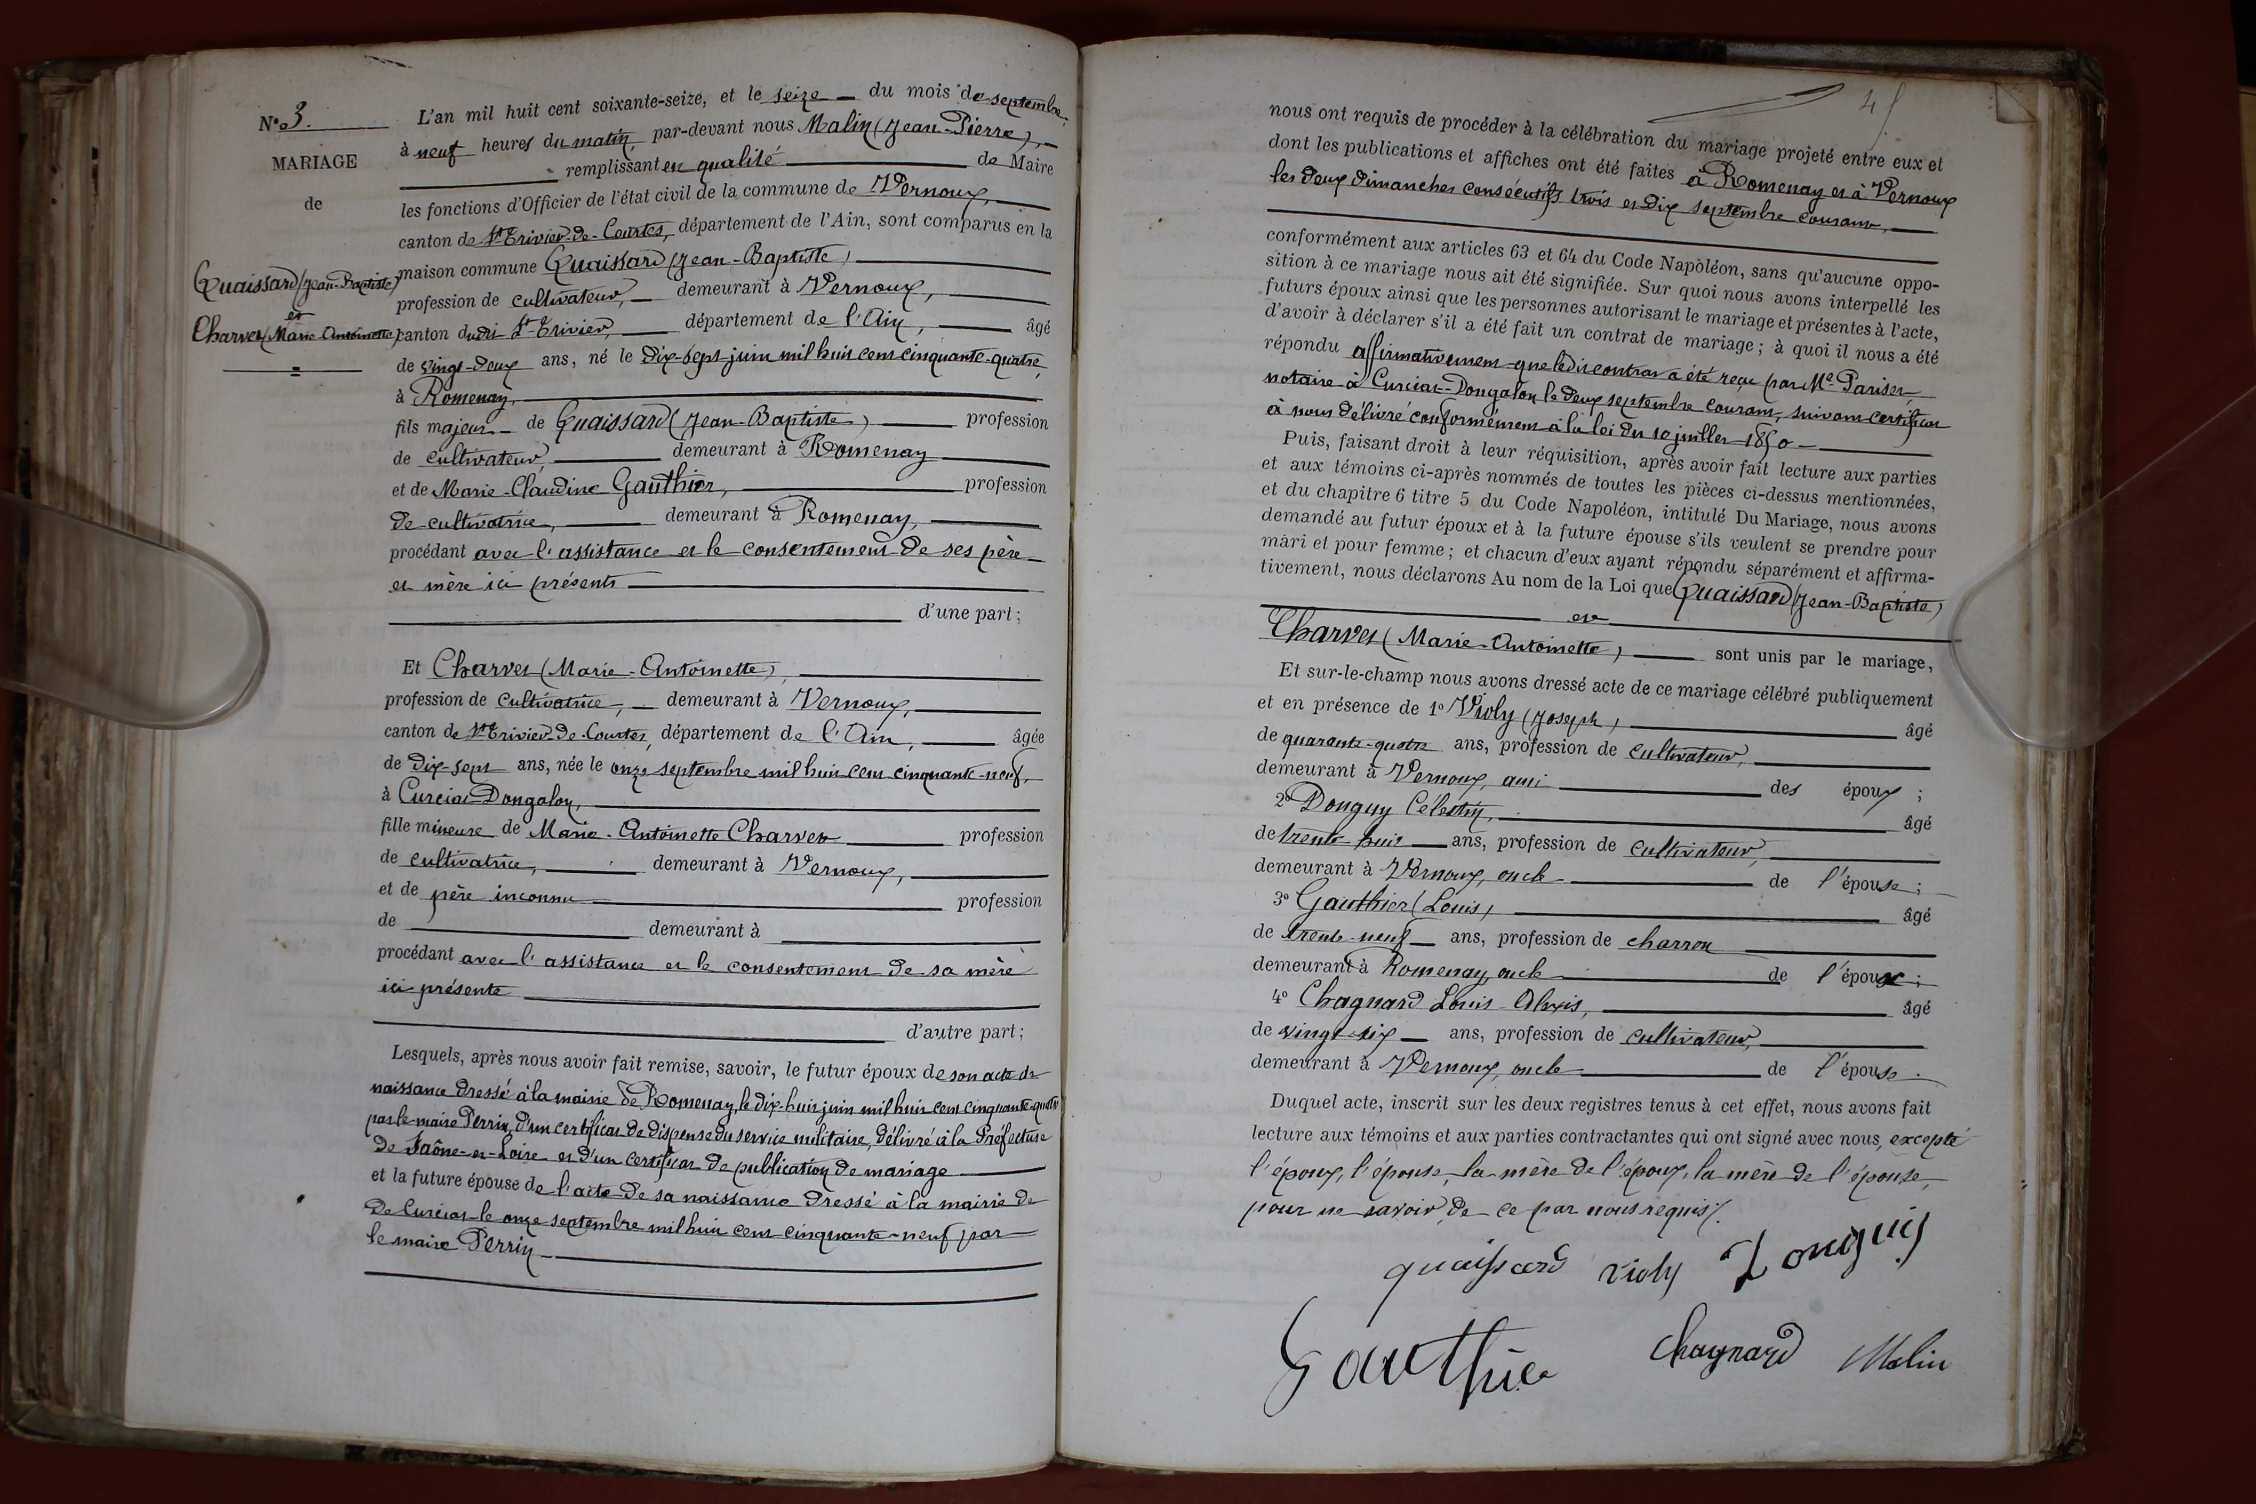 N° 3.
MARIAGE
de
Quaissard (Jean-Baptiste)
et
Charvet (Marie Antoinette)
L'an mil huit cent soixante-seize, et le seize du mois de septembre,
à neuf heures du matin, par-devant nous Malin (Jean-Pierre),
remplissant en qualité de Maire
les fonctions d'Officier de l'état civil de la commune de Vernoux,
canton de St Trivier-de-Courtes, département de l'Ain, sont comparus en la
maison commune Quaissard (Jean-Baptiste)
profession de cultivateur, demeurant à Vernoux,
canton dudit St Trivier, département de l'Ain, âgé
de vingt-deux ans, né le dix-sept juin mil huit cent cinquante-quatre,
à Romenay,
fils majeur de Quaissard (Jean-Baptiste) profession
de cultivateur, demeurant à Romenay
et de Marie-Claudine Gauthier, profession
de cultivatrice, demeurant à Romenay,
procédant avec l'assistance et le consentement de ses père
et mère ici présents
d'une part;
Et Charvet (Marie-Antoinette),
profession de cultivatrice, demeurant à Vernoux,
canton de St Trivier-de-Courtes, département de l'Ain, âgée
de dix-sept ans, née le onze septembre mil huit cent cinquante-neuf,
à Curciat-Dongalon,
fille mineure de Marie-Antoinette Charvet profession
de cultivatrice, demeurant à Vernoux,
et de père inconnu profession
de demeurant à
procédant avec l'assistance et le consentement de sa mère
ici présente
d'autre part;
Lesquels, après nous avoir fait remise, savoir, le futur époux de son acte de
naissance dressé à la mairie de Romenay, le dix-huit juin mil huit cent cinquante-quatre
par le maire Perrin, d'un certificat de dispense du service militaire, délivré à la Préfecture
de Saône-et-Loire et d'un certificat de publication de mariage
et la future épouse de l'acte de sa naissance dressé à la mairie de
de Curciat le onze septembre mil huit cent cinquante-neuf par
le maire Perrin
45
nous ont requis de procéder à la célébration du mariage projeté entre eux et
dont les publications et affiches ont été faites à Romenay et à Vernoux
les deux dimanches consécutifs trois et dix septembre courant,
conformément aux articles 63 et 64 du Code Napoléon, sans qu'aucune oppo-
sition à ce mariage nous ait été signifiée. Sur quoi nous avons interpellé les
futurs époux ainsi que les personnes autorisant le mariage et présentes à l'acte,
d'avoir à déclarer s'il a été fait un contrat de mariage; à quoi il nous a été
répondu affirmativement que ledit contrat a été reçu par Me Pariset,
notaire à Curciat-Dongalon le deux septembre courant, suivant certificat
à nous délivré conformément à la loi du 10 juillet 1850
Puis, faisant droit à leur réquisition, après avoir fait lecture aux parties
et aux témoins ci-après nommés de toutes les pièces ci-dessus mentionnées,
et du chapitre 6 titre 5 du Code Napoléon, intitulé Du Mariage, nous avons
demandé au futur époux et à la future épouse s'ils veulent se prendre pour
mari et pour femme; et chacun d'eux ayant répondu séparément et affirma-
tivement, nous déclarons Au nom de la Loi que Quaissard (Jean-Baptiste)
et
Charvet (Marie-Antoinette) sont unis par le mariage,
Et sur-le-champ nous avons dressé acte de ce mariage célébré publiquement
et en présence de 1° Violy (Joseph) âgé
de quarante-quatre ans, profession de cultivateur,
demeurant à Vernoux, ami des époux;
2° Donguy Célestin, âgé
de trente-huit ans, profession de cultivateur,
demeurant à Vernoux, oncle de l'épouse;
3° Gauthier (Louis) âgé
de trente-neuf ans, profession de charron
demeurant à Romenay, oncle de l'époux;
4° Chagnard Louis-Alexis, âgé
de vingt-six ans, profession de cultivateur,
demeurant à Vernoux, oncle de l'épouse.
Duquel acte, inscrit sur les deux registres tenus à cet effet, nous avons fait
lecture aux témoins et aux parties contractantes qui ont signé avec nous, excepté
l'époux, l'épouse, la mère de l'époux, la mère de l'épouse,
pour ne savoir, de ce par nous requis.
quaissard violy Donguy
Gauthier chagnard Malin